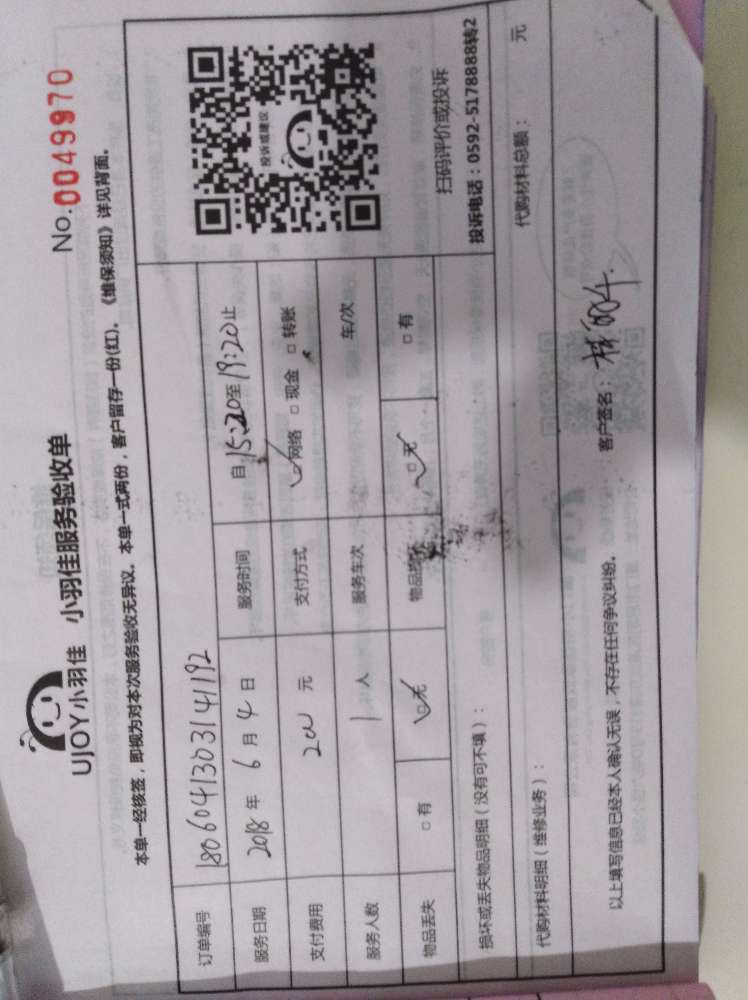 UJOY小羽佳 小羽佳服务验收单
No.0049970
本单一经核签，即视为对本次服务验收无异议。本单一式两份，客户留存一份(红)。《维保须知》详见背面。
订单编号 18060413031 41192
服务日期 2018 年 6 月 4 日 服务时间 自 15:20 至 19:20 止
支付费用 200 元 支付方式 ☑网络 □现金 □转账
服务人数 1 人 服务车次 车/次
物品丢失 □有 ☑无 物品损坏 ☑无 □有
投诉或建议
扫码评价或投诉
投诉电话：0592-5178888转2
损坏或丢失物品明细（没有可不填）：
代购材料明细（维修业务）： 代购材料总额： 元
以上填写信息已经本人确认无误，不存在任何争议纠纷。 客户签名：